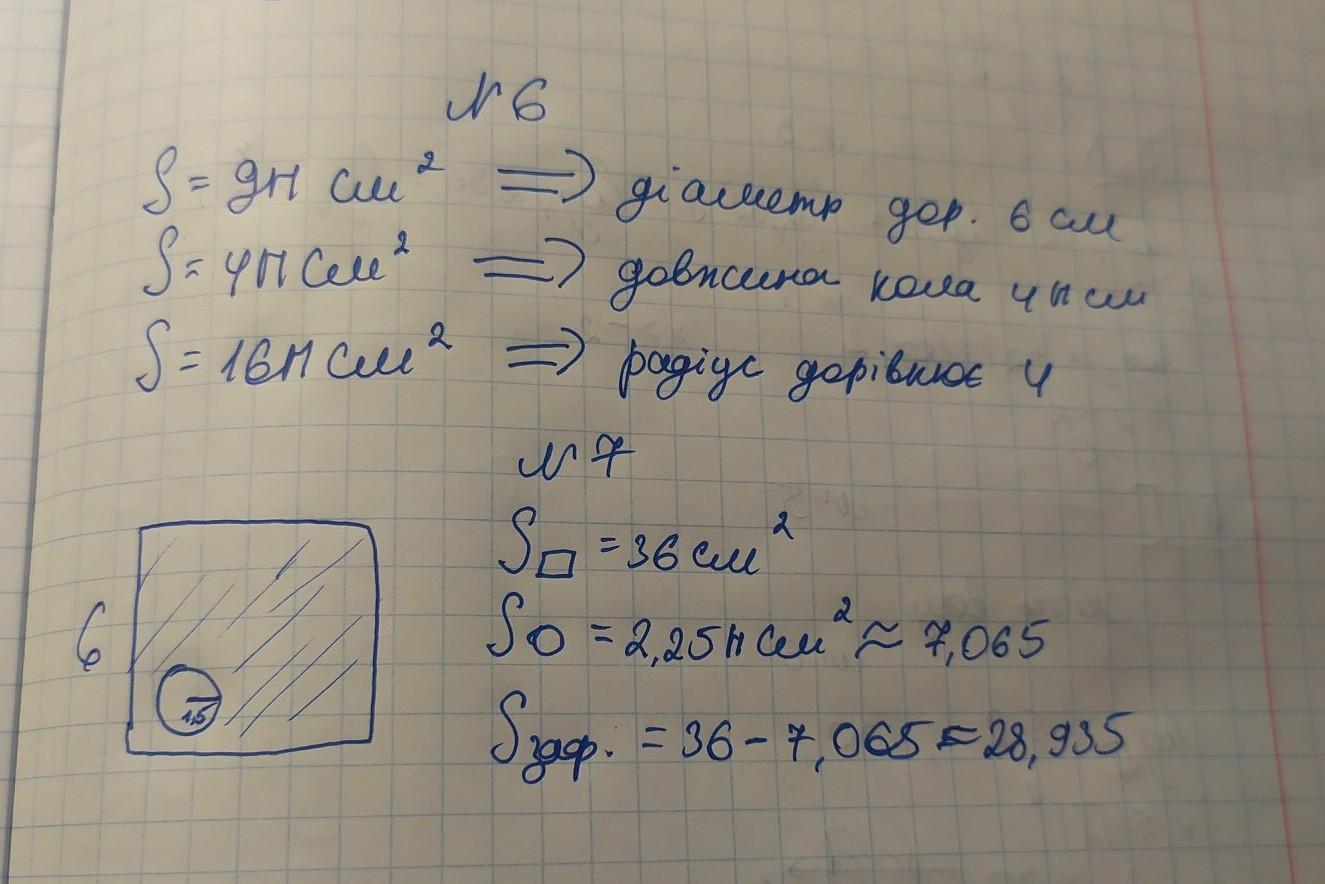 №6
S = 9π см² ⟹ діаметр дор. 6 см
S = 4π см² ⟹ довжина кола 4π см
S = 16π см² ⟹ радіус дорівнює 4
№7
S□ = 36 см²
S○ = 2,25π см² ≈ 7,065
6
1,5
Sзаф. = 36 - 7,065 = 28,935